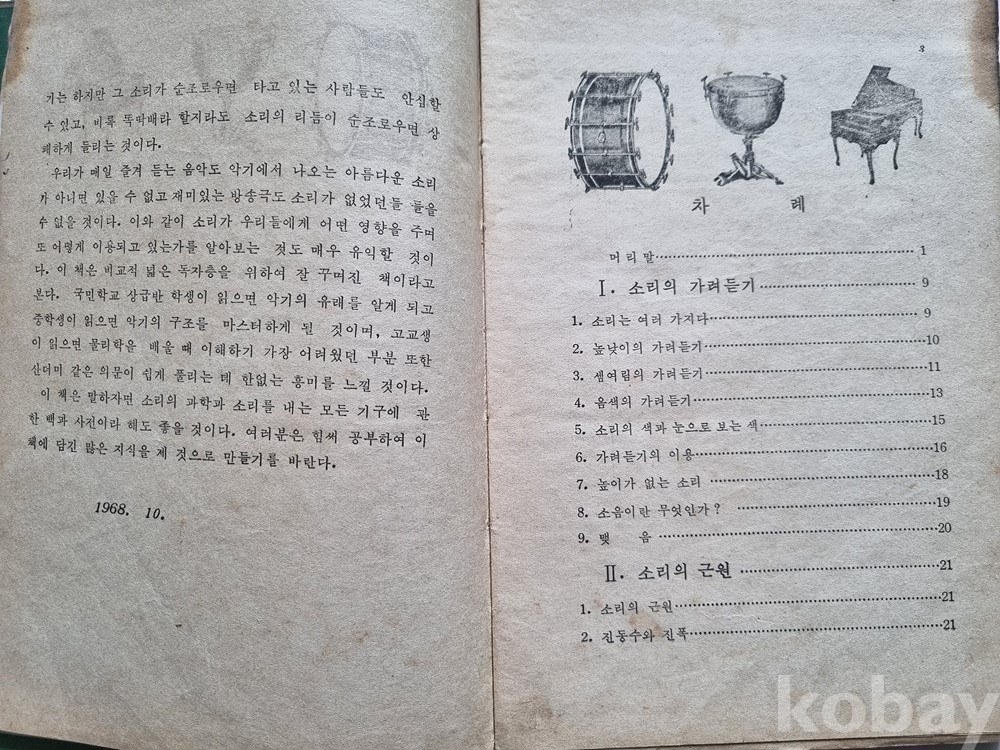 기는 하지만 그 소리가 순조로우면 타고 있는 사람들도 안심할
수 있고, 비록 똑딱배라 할지라도 소리의 리듬이 순조로우면 상
쾌하게 들리는 것이다.
우리가 매일 즐겨 듣는 음악도 악기에서 나오는 아름다운 소리
가 아니면 있을 수 없고 재미있는 방송극도 소리가 없었던들 들을
수 없을 것이다. 이와 같이 소리가 우리들에게 어떤 영향을 주며
또 어떻게 이용되고 있는가를 알아보는 것도 매우 유익할 것이
다. 이 책은 비교적 넓은 독자층을 위하여 잘 꾸며진 책이라고
본다. 국민학교 상급반 학생이 읽으면 악기의 유래를 알게 되고
중학생이 읽으면 악기의 구조를 마스터하게 될 것이며, 고교생
이 읽으면 물리학을 배울 때 이해하기 가장 어려웠던 부분 또한
산더미 같은 의문이 쉽게 풀리는 데 한없는 흥미를 느낄 것이다.
이 책은 말하자면 소리의 과학과 소리를 내는 모든 기구에 관
한 백과 사전이라 해도 좋을 것이다. 여러분은 힘써 공부하여 이
책에 담긴 많은 지식을 제 것으로 만들기를 바란다.
1968. 10.
3
차 례
머리말 1
Ⅰ. 소리의 가려듣기 9
1. 소리는 여러 가지다 9
2. 높낮이의 가려듣기 10
3. 셈여림의 가려듣기 11
4. 음색의 가려듣기 13
5. 소리의 색과 눈으로 보는 색 15
6. 가려듣기의 이용 16
7. 높이가 없는 소리 18
8. 소음이란 무엇인가? 19
9. 맺 음 20
Ⅱ. 소리의 근원 21
1. 소리의 근원 21
2. 진동수와 진폭 21
kobay